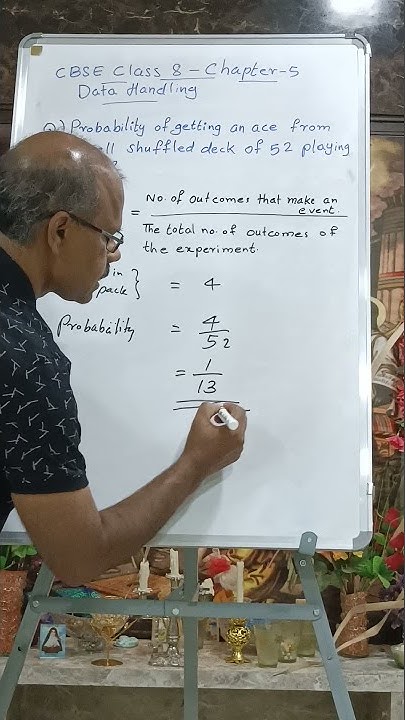 CBSE Class 8 - Chapter-5
Data Handling
Probability of getting an ace from
shuffled deck of 52 playing
= No. of outcomes that make an event.
The total no. of outcomes of
the experiment.
in
pack } = 4
Probability = 4
52
= 1
13